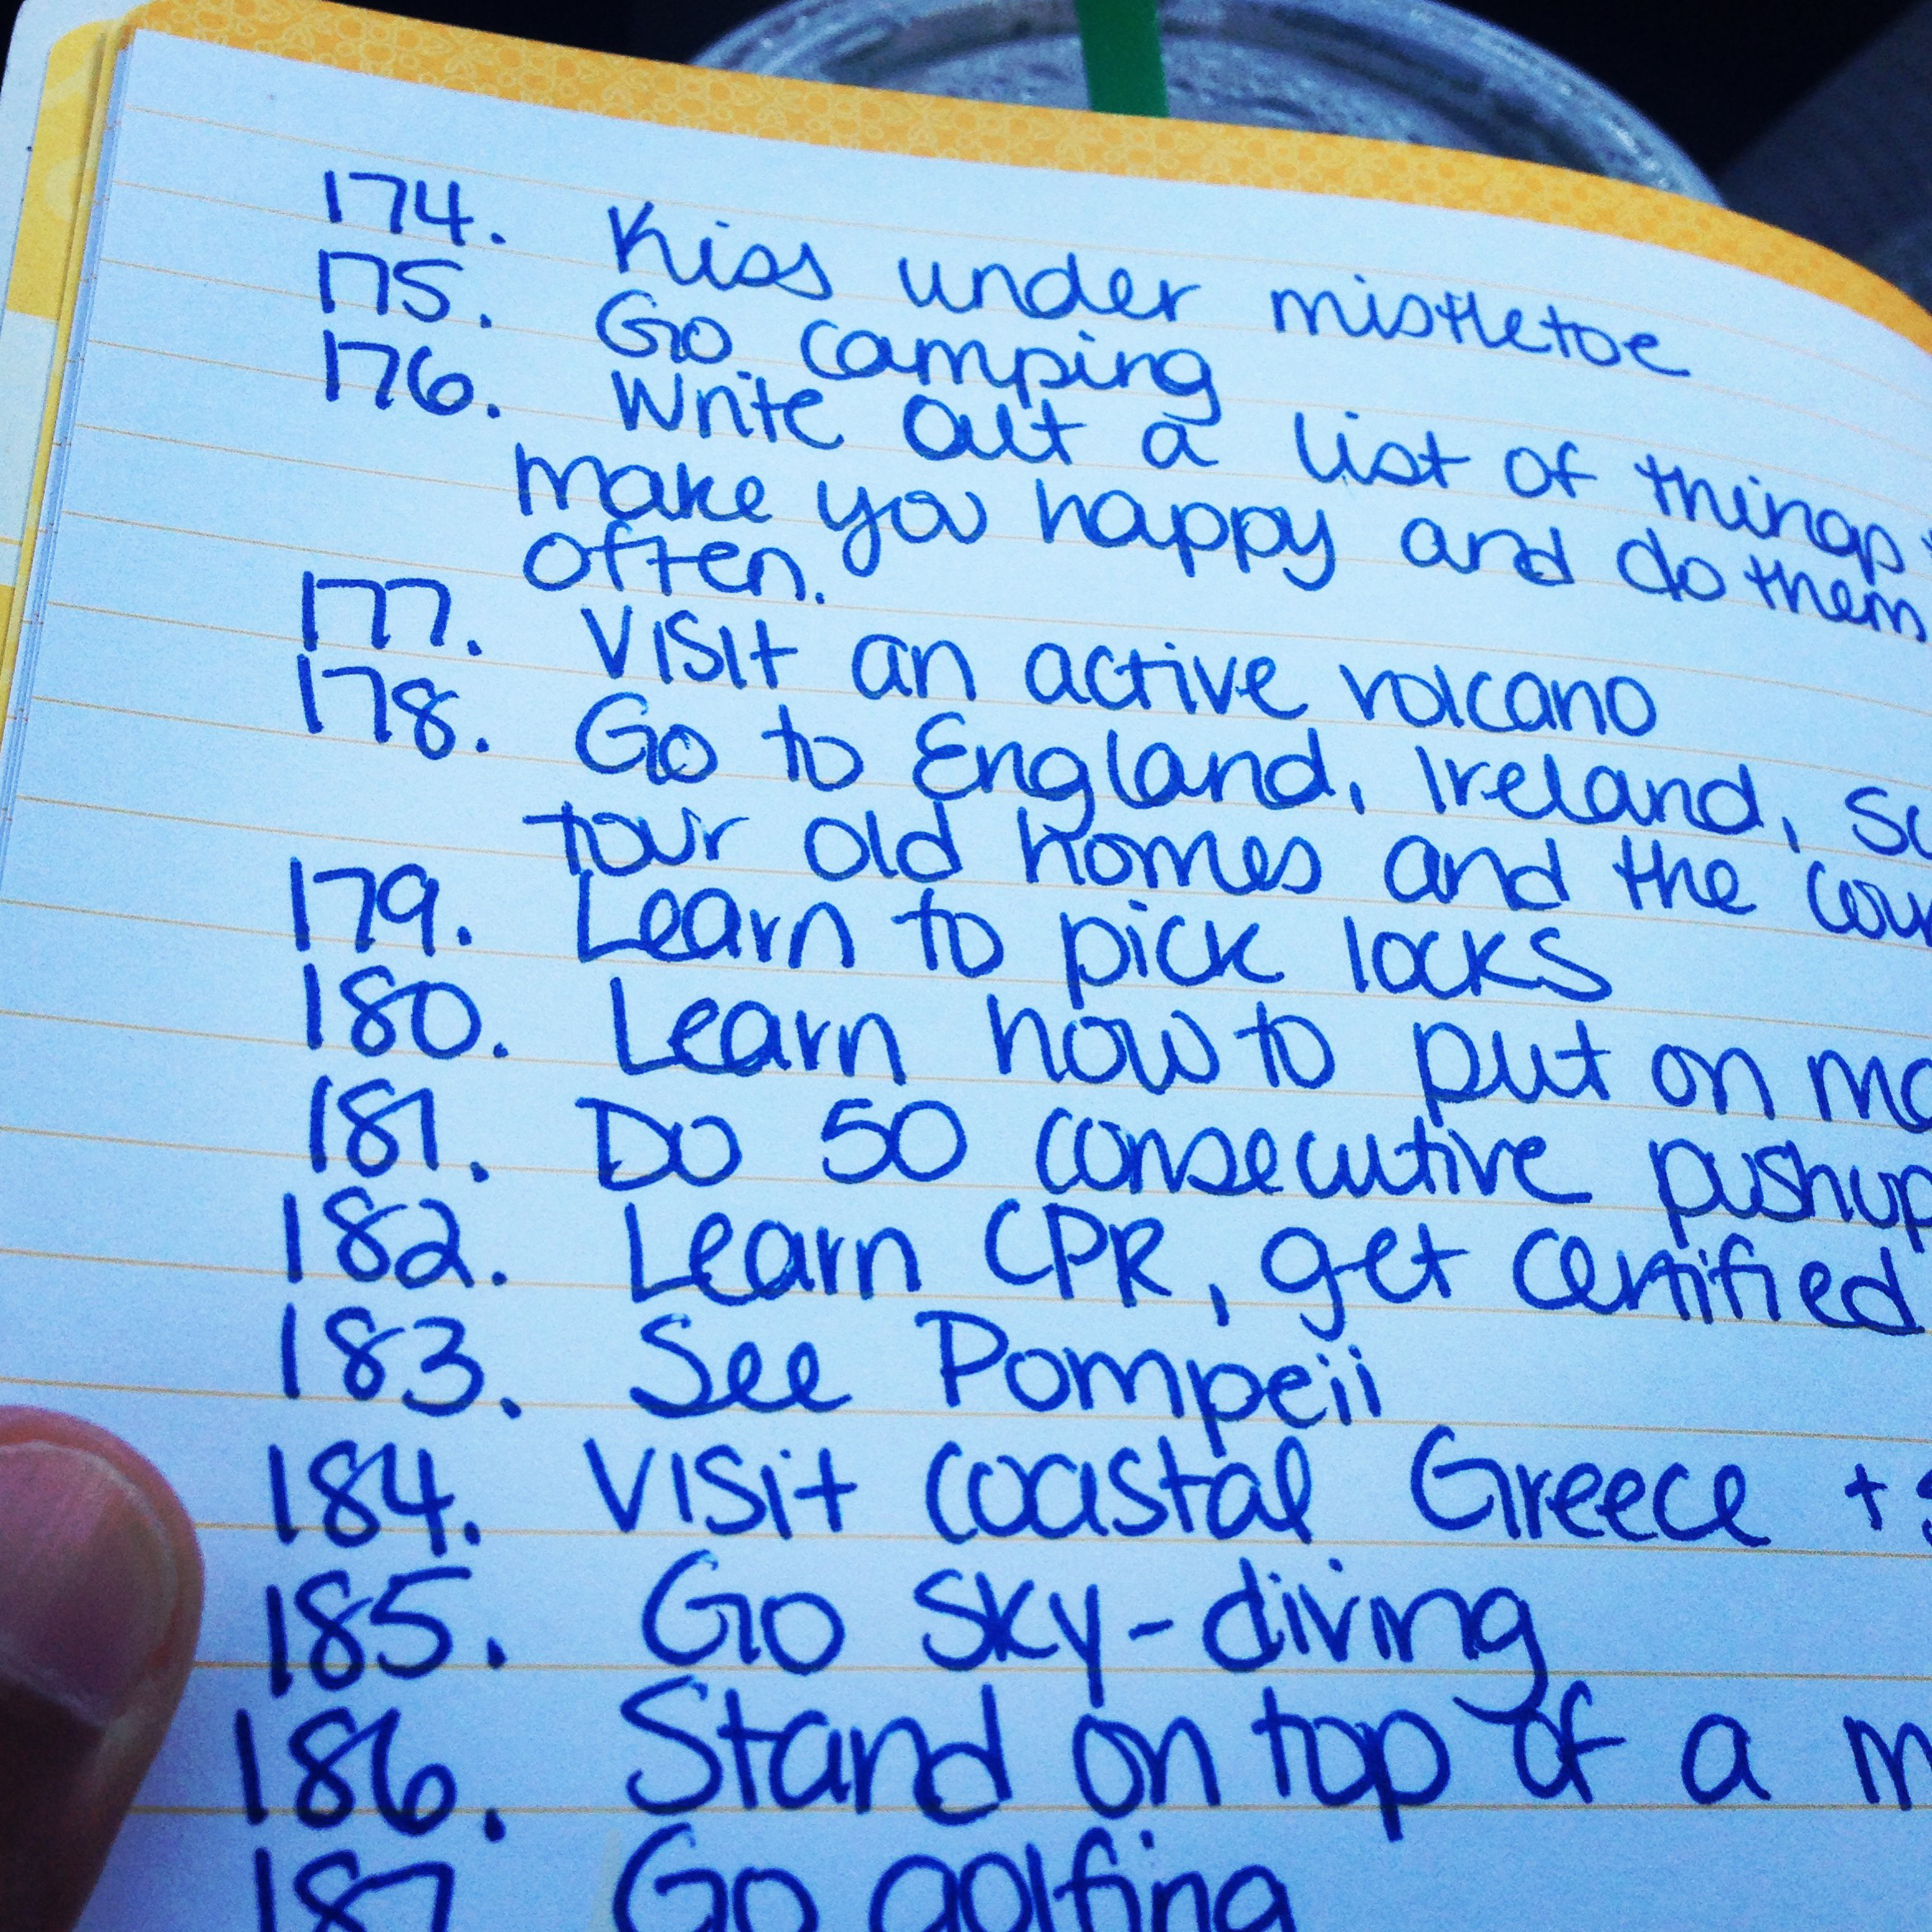 174. Kiss under mistletoe
175. Go camping
176. Write out a list of things
make you happy and do them
often.
177. Visit an active volcano
178. Go to England, Ireland,
tour old homes and the
179. Learn to pick locks
180. Learn how to put on
181. Do 50 consecutive pushup
182. Learn CPR, get certified
183. See Pompeii
184. Visit coastal Greece +
185. Go sky-diving
186. Stand on top of a
187 Go golfing